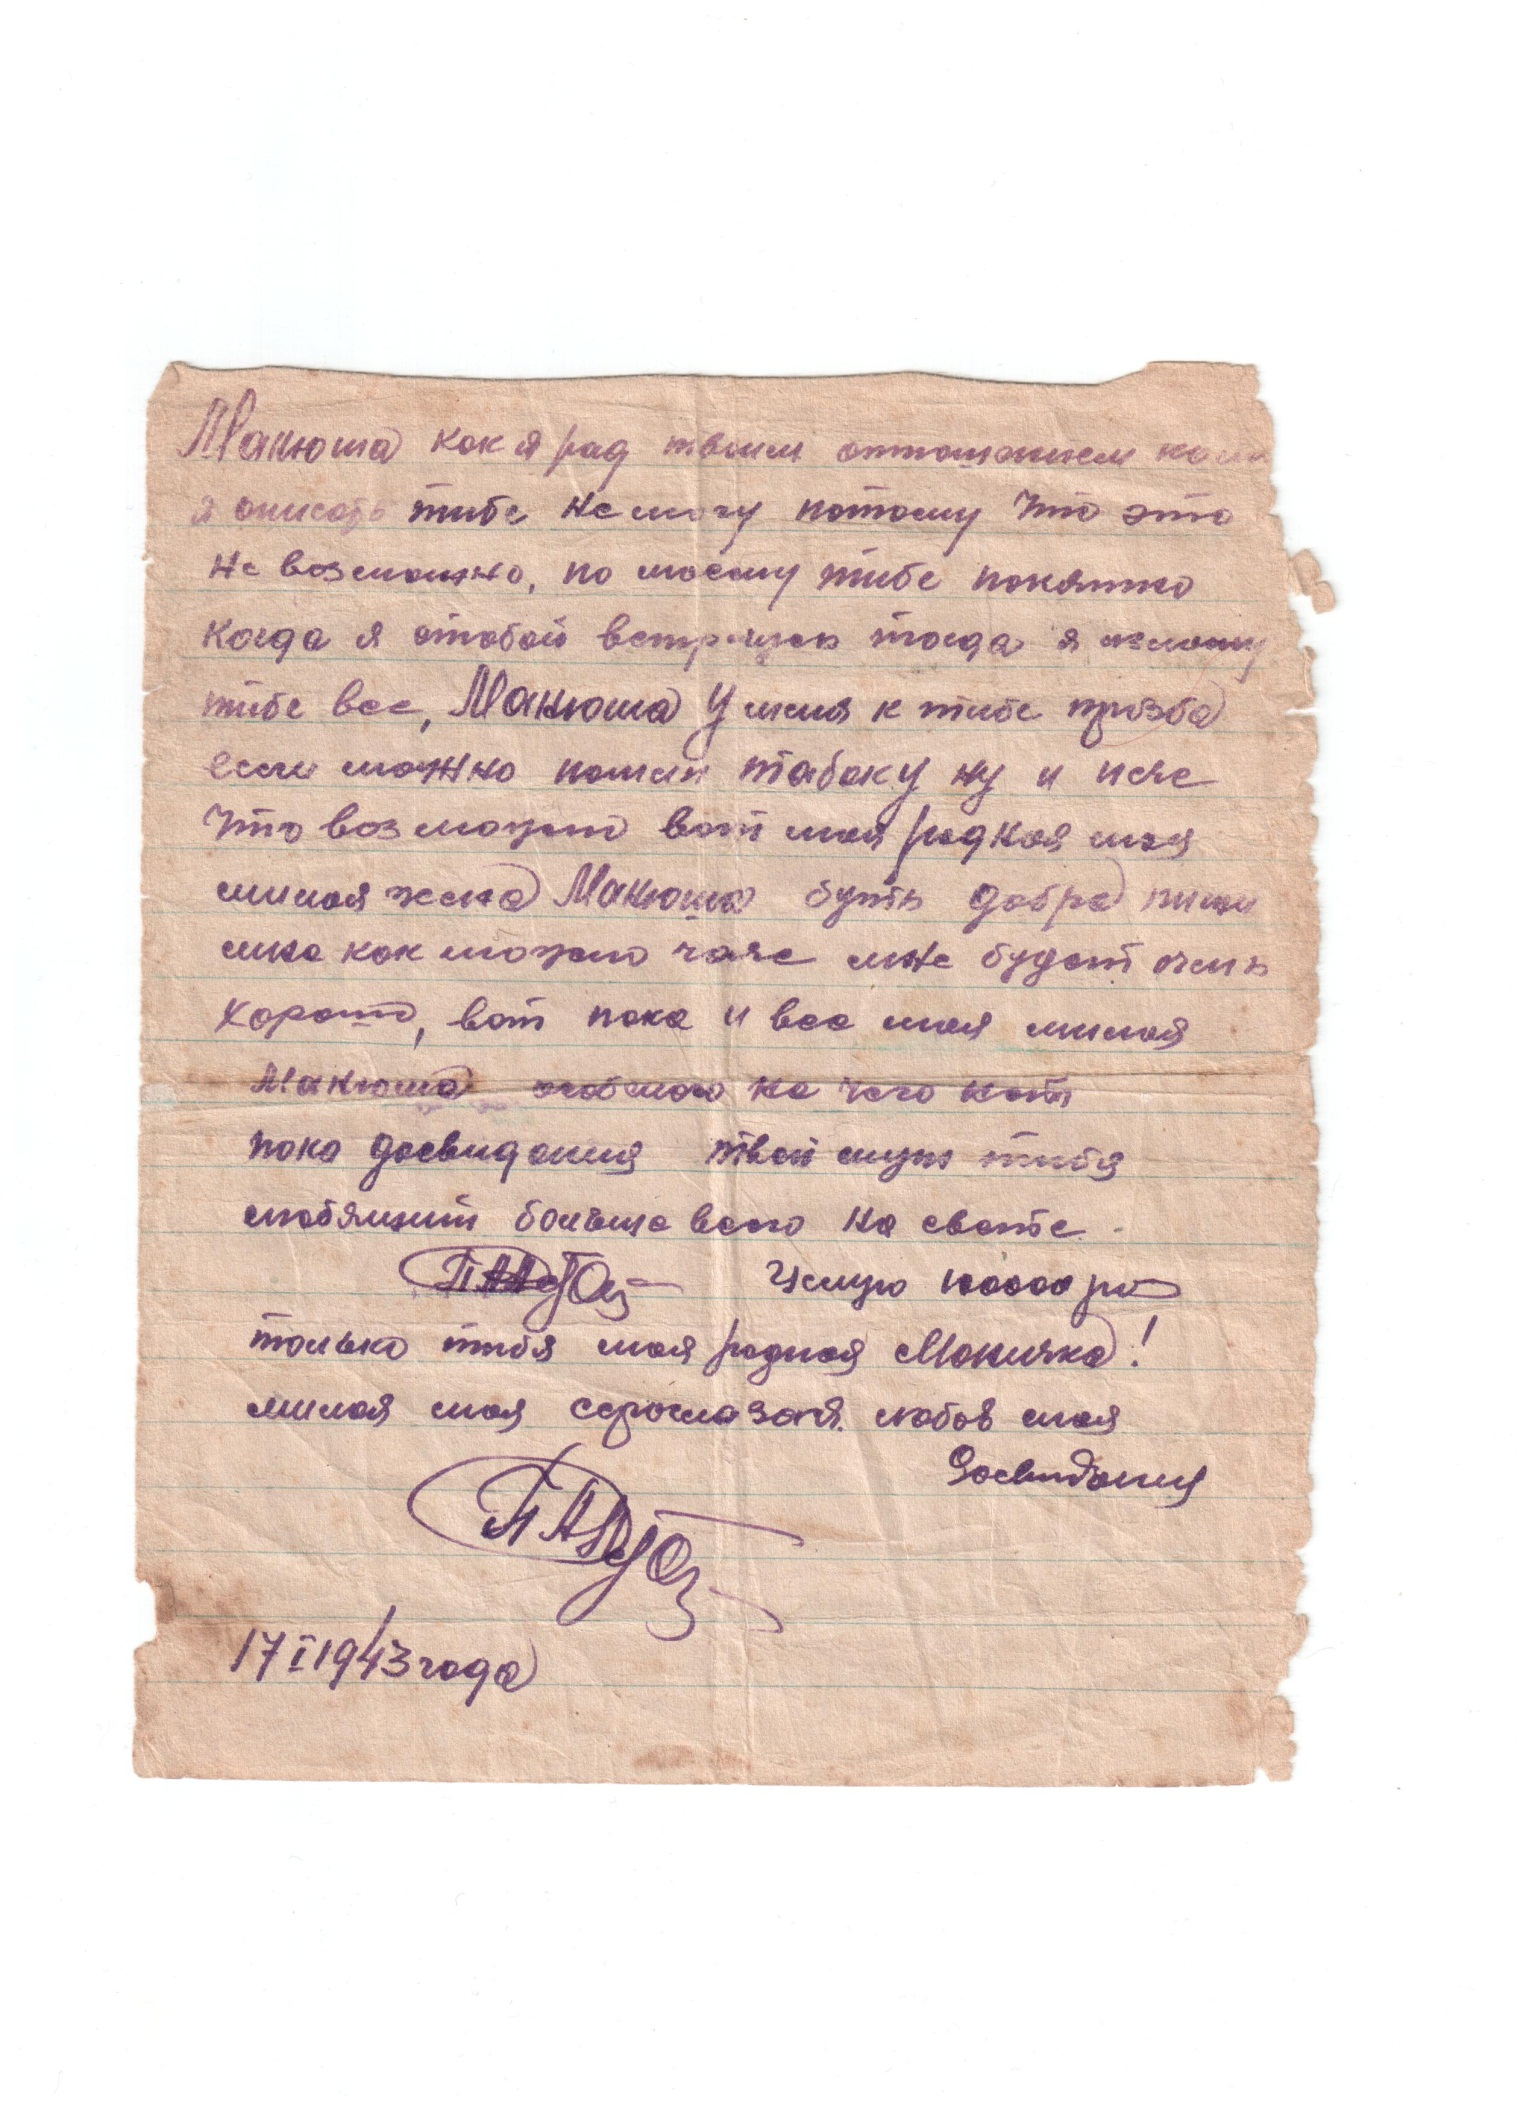 Манюша как я рад твоим
я описать тибе не могу потому что это
не возможно, по моему тибе понятно
когда я стобой встречусь тогда я
тибе все, Манюша У миня к тибе прозба
если можно пошли табаку ну и исче
что возможно вот моя родная моя
милая жена Манюша будь добра пиши
мне как можно чаще мне будет очень
хорошо, вот пока и все моя милая
Манюша особého на чего нет
пока досвидания твой муж тибя
любящий больше всего на свете.
Целую 100000 раз
только тибя моя родная Маничка!
милая моя сероглазая любов моя
досвидания
17 I 1943 года